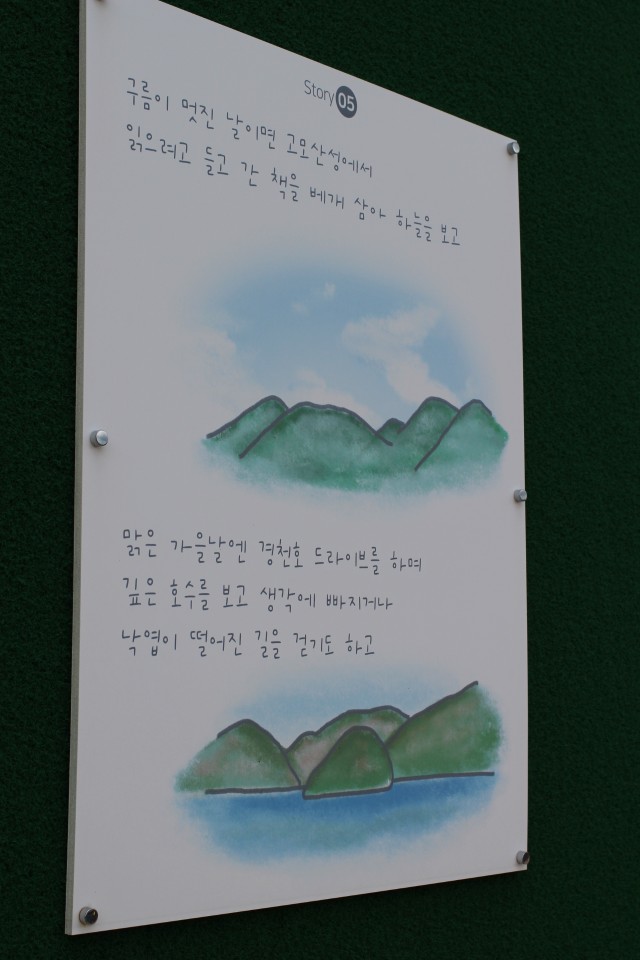 Story 05
구름이 멋진 날이면 고모산성에서
읽으려고 들고 간 책을 베개 삼아 하늘을 보고
맑은 가을날엔 경천호 드라이브를 하며
깊은 호수를 보고 생각에 빠지거나
낙엽이 떨어진 길을 걷기도 하고